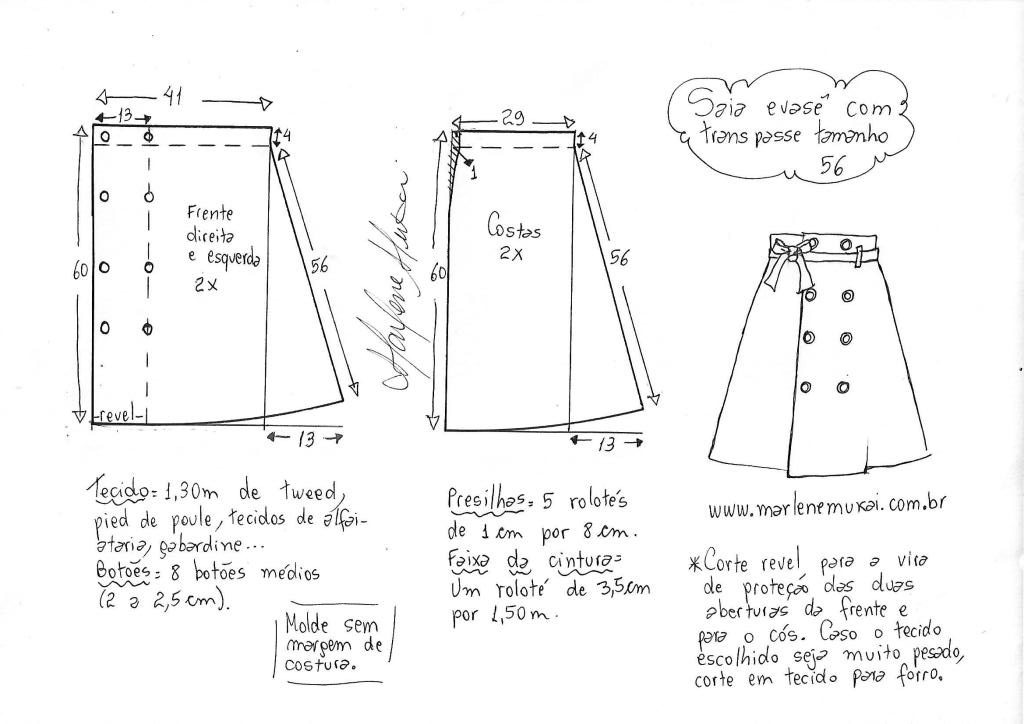 Saia evasê com
transpasse tamanho
56
41
13
4
60
Frente
direita
e esquerda
2x
56
-revel-
13
Marlene Mukai
29
4
1
Costas
2x
60
56
13
Tecido = 1,30m de tweed,
pied de poule, tecidos de alfai-
ataria, gabardine...
Botões = 8 botões médios
(2 a 2,5cm).
Molde sem
margem de
costura.
Presilhas = 5 rolotés
de 1cm por 8cm.
Faixa da cintura=
Um roloté de 3,5cm
por 1,50m.
www.marlenemukai.com.br
*Corte revel para a vira
de proteção das duas
aberturas da frente e
para o cós. Caso o tecido
escolhido seja muito pesado,
corte em tecido para forro.